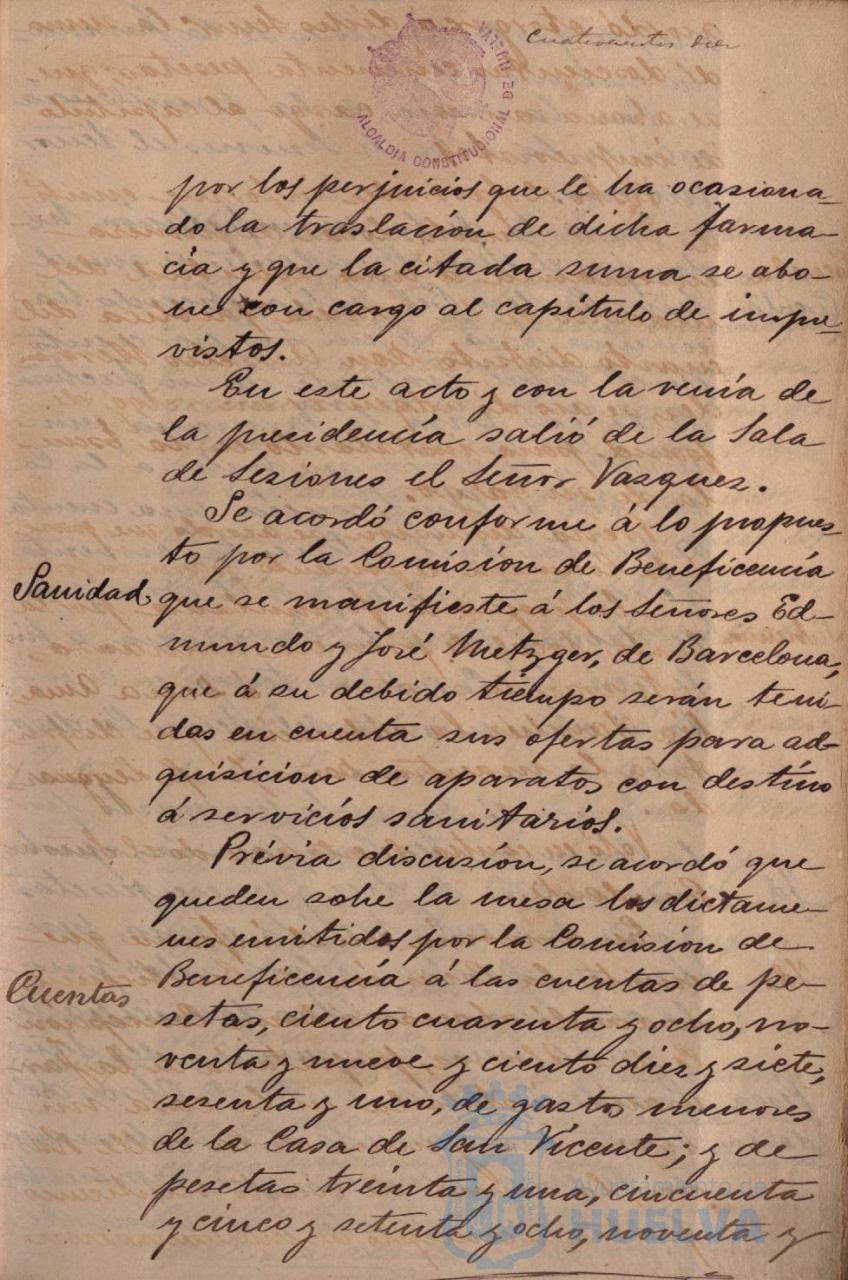 Cuatrocientos diez
ALCALDIA CONSTITUCIONAL DE HUELVA
por los perjuicios que le ha ocasiona-
do la traslación de dicha farma-
cia y que la citada suma se abo-
ne con cargo al capítulo de impre-
vistos.
En este acto y con la venia de
la presidencia salió de la Sala
de Sesiones el Señor Vazquez.
Se acordó conforme á lo propues-
to por la Comisión de Beneficencia
Sanidad
que se manifieste á los Señores Ed-
mundo y José Metzger, de Barcelona,
que á su debido tiempo serán teni-
das en cuenta sus ofertas para ad-
quisicion de aparatos con destino
á servicios sanitarios.
Prévia discusión, se acordó que
queden sobre la mesa los dictame-
nes emitidos por la Comisión de
Cuentas
Beneficencia á las cuentas de pe-
setas, ciento cuarenta y ocho, no-
venta y nueve y ciento diez y siete,
sesenta y uno, de gastos menores
de la Casa de San Vicente; y de
pesetas treinta y una, cincuenta
y cinco y setenta y ocho, noventa y
Ayuntamiento de
HUELVA